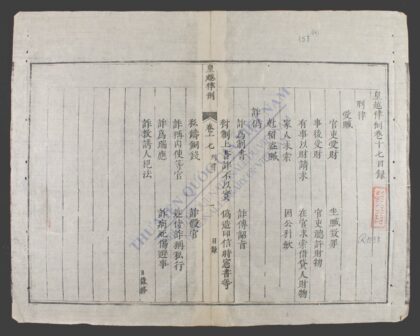 皇越律例卷十七目錄
刑律
受贓
官吏受財 坐贓致罪
事後受財 官吏聽許財物
有事以財請求 在官求索借貸人財物
家人求索 因公科斂
尅留盜贓
詐偽
詐為制書 詐傳詔旨
對制上書詐不以實 偽造印信時憲書等
皇越律例 卷十七 目錄
私鑄銅錢 詐假官
詐稱內使等官 近侍詐稱私行
詐為瑞應 詐病死傷避事
詐教誘人犯法
目錄終
THƯ VIỆN QUỐC GIA VIỆT NAM